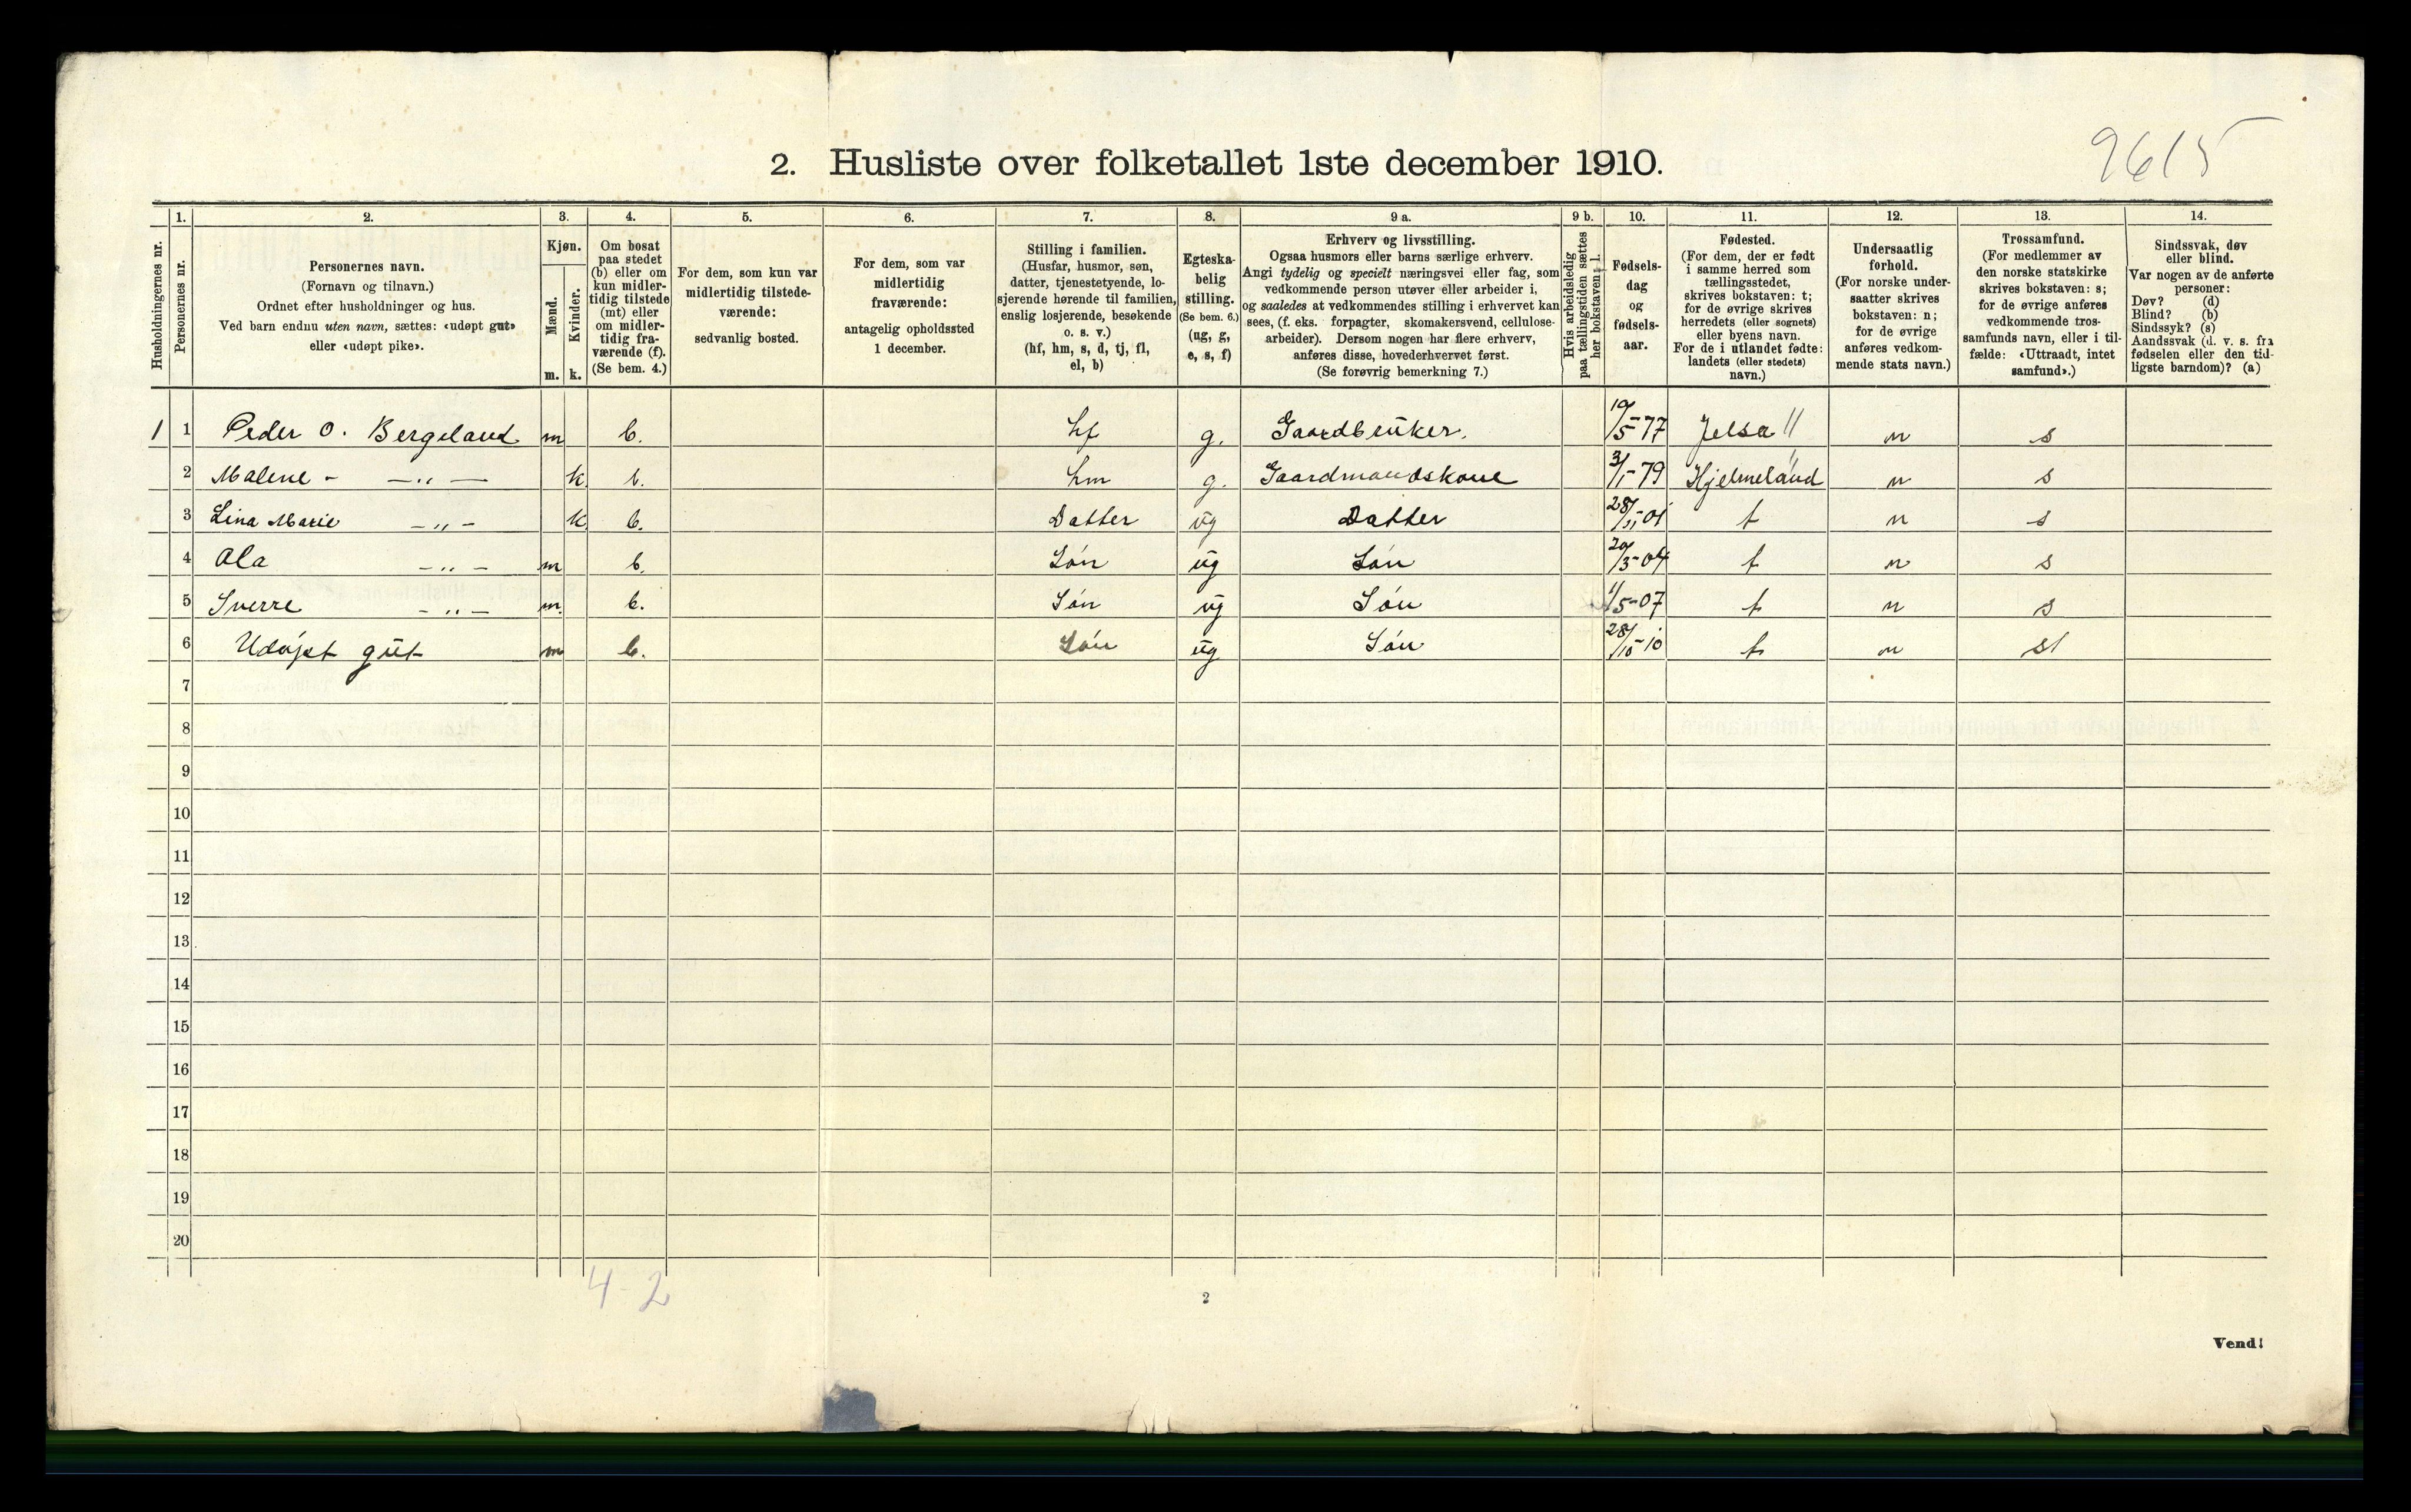 9615
2. Husliste over folketallet 1ste december 1910.
Husholdningernes nr.
1.
Personernes nr.
2.
Personernes navn.
(Fornavn og tilnavn.)
Ordnet efter husholdninger og hus.
Ved barn endnu uten navn, sættes: «udøpt gut»
eller «udøpt pike».
3.
Kjøn.
Mænd.
Kvinder.
m. k.
4.
Om bosat
paa stedet
(b) eller om
kun midler-
tidig tilstede
(mt) eller
om midler-
tidig fra-
værende (f).
(Se bem. 4.)
5.
For dem, som kun var
midlertidig tilstede-
værende:
sedvanlig bosted.
6.
For dem, som var
midlertidig
fraværende:
antagelig opholdssted
1 december.
7.
Stilling i familien.
(Husfar, husmor, søn,
datter, tjenestetyende, lo-
sjerende hørende til familien,
enslig losjerende, besøkende
o. s. v.)
(hf, hm, s, d, tj, fl,
el, b)
8.
Egteska-
belig
stilling.
(Se bem. 6.)
(ug, g,
e, s, f)
9 a.
Erhverv og livsstilling.
Ogsaa husmors eller barns særlige erhverv.
Angi tydelig og specielt næringsvei eller fag, som
vedkommende person utøver eller arbeider i,
og saaledes at vedkommendes stilling i erhvervet kan
sees, (f. eks. forpagter, skomakersvend, cellulose-
arbeider). Dersom nogen har flere erhverv,
anføres disse, hovederhvervet først.
(Se forøvrig bemerkning 7.)
9 b.
Hvis arbeidsledig
paa tællingstiden sættes
her bokstaven: l.
10.
Fødsels-
dag
og
fødsels-
aar.
11.
Fødested.
(For dem, der er født
i samme herred som
tællingsstedet,
skrives bokstaven: t;
for de øvrige skrives
herredets (eller sognets)
eller byens navn.
For de i utlandet fødte:
landets (eller stedets)
navn.)
12.
Undersaatlig
forhold.
(For norske under-
saatter skrives
bokstaven: n;
for de øvrige
anføres vedkom-
mende stats navn.)
13.
Trossamfund.
(For medlemmer av
den norske statskirke
skrives bokstaven: s;
for de øvrige anføres
vedkommende tros-
samfunds navn, eller i til-
fælde: «Uttraadt, intet
samfund».)
14.
Sindssvak, døv
eller blind.
Var nogen av de anførte
personer:
Døv? (d)
Blind? (b)
Sindssyk? (s)
Aandssvak (d. v. s. fra
fødselen eller den tid-
ligste barndom)? (a)
1 1 Peder O. Bergeland m b. hf g. Gaardbruker. 19/5-77 Jelsa " n s
2 Malene - —„— k. b. hm g. Gaardmandskone 3/1-79 Hjelmeland n s
3 Lina Marie —„— k. b. Datter ug Datter 28/11-01 t n s
4 Ola —„— m b. Søn ug Søn 20/3-04 t n s
5 Sverre —„— m. b. Søn ug Søn 1/5-07 t n s
6 Udøpt gut m b. Søn ug Søn 28/10-10 t n s
7
8
9
10
11
12
13
14
15
16
17
18
19
20
4-2
2
Vend!